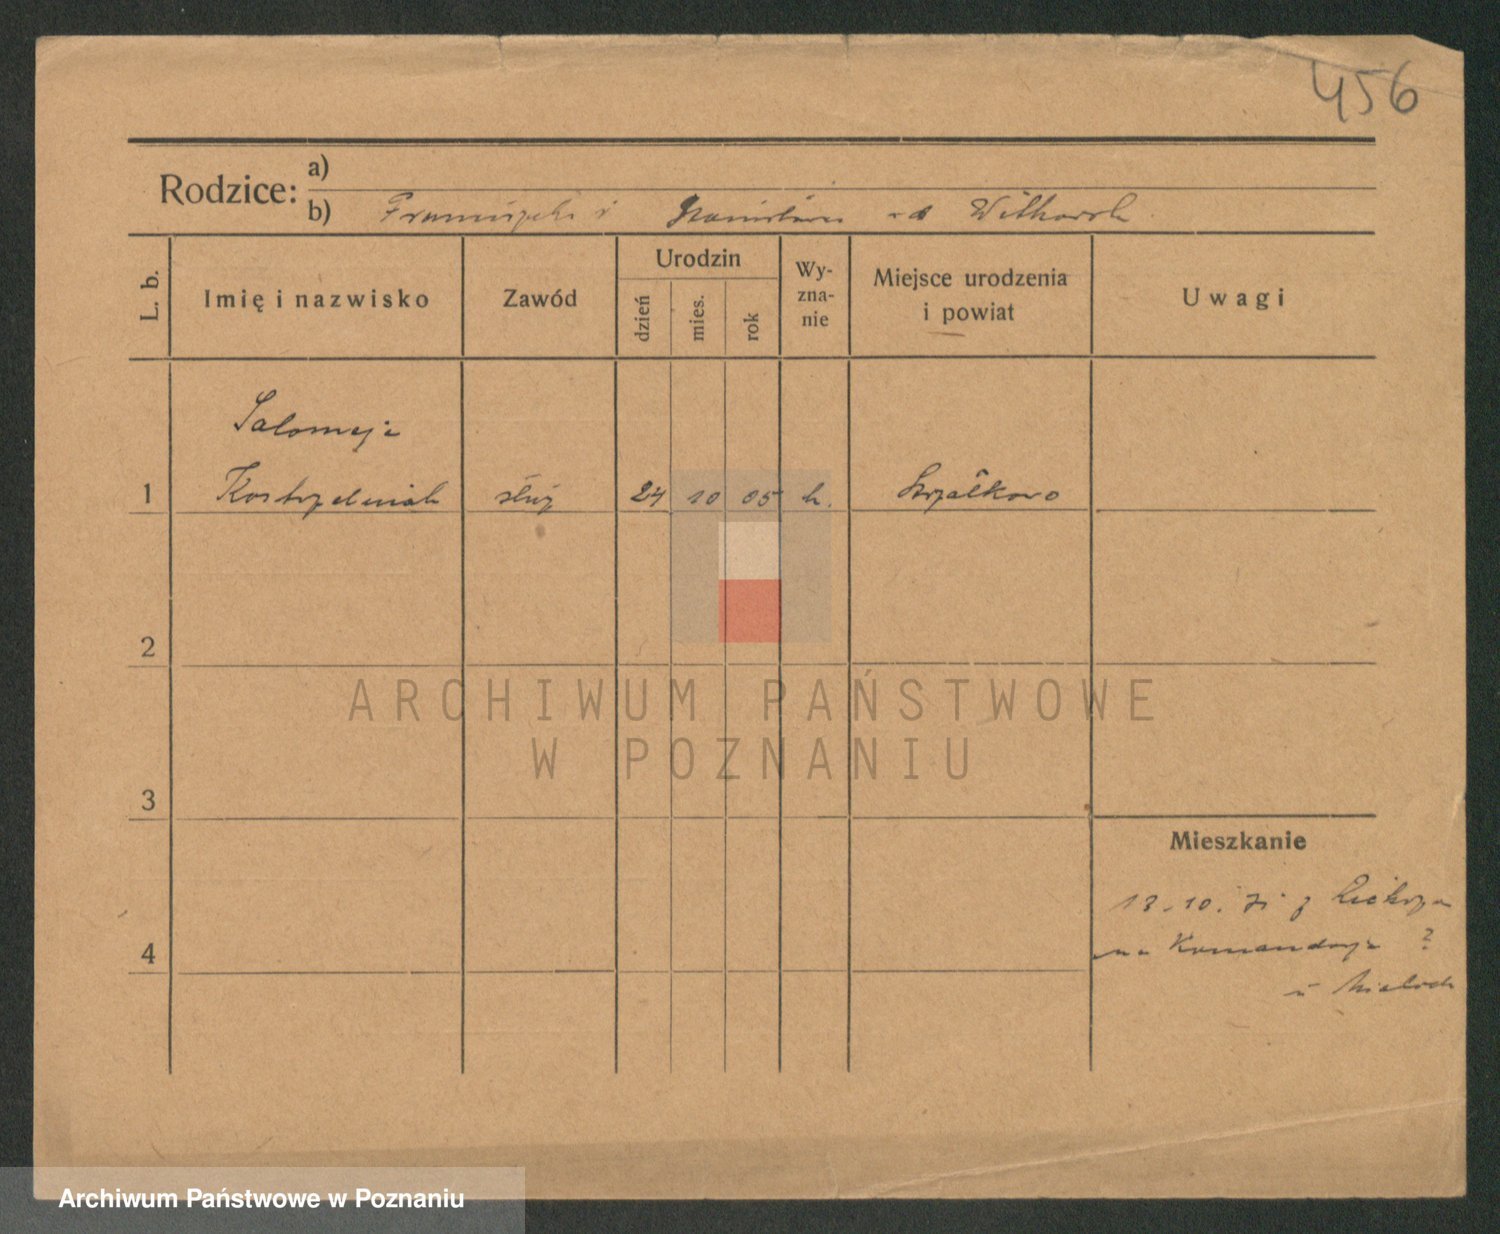 456
Rodzice: a)
b) Franciszek i Stanisława od Witkowsk
L. b.
Imię i nazwisko
Zawód
Urodzin
dzień
mies.
rok
Wy-
zna-
nie
Miejsce urodzenia
i powiat
Uwagi
Salomeja
1 Kostrzewiak służ 24 10 05 k. Strzałkowo
2
3
4
Mieszkanie
13.10. z
na Komandorja ?
u
ARCHIWUM PAŃSTWOWE
W POZNANIU
Archiwum Państwowe w Poznaniu